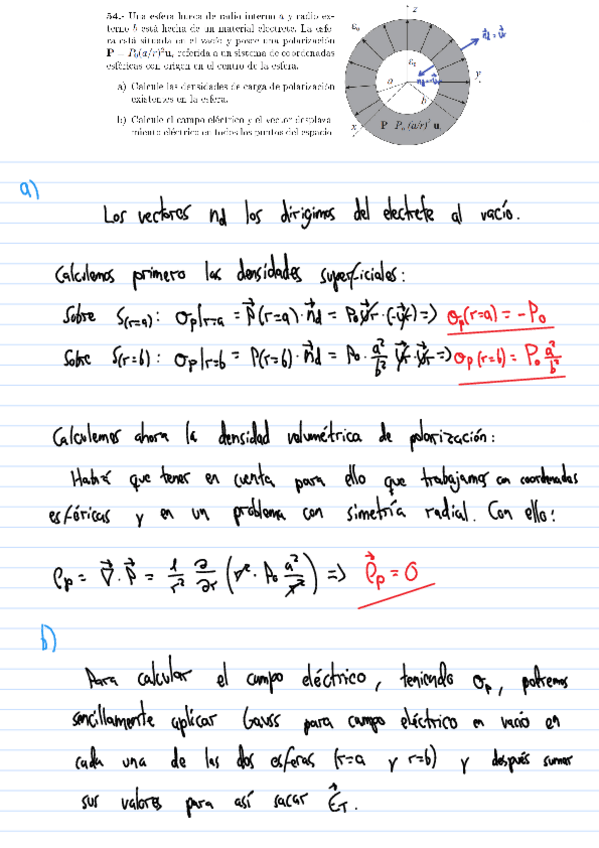 54.- Una esfera hueca de radio interno a y radio ex-
terno b está hecha de un material electrete. La esfe-
ra está situada en el vacío y posee una polarización
P = P₀(a/r)²uᵣ referida a un sistema de coordenadas
esféricas con origen en el centro de la esfera.
a) Calcule las densidades de carga de polarización
existentes en la esfera.
b) Calcule el campo eléctrico y el vector desplaza-
miento eléctrico en todos los puntos del espacio.
z
ε₀
ε₀
a
b
y
x
P = P₀(a/r)² uᵣ
a)
Los vectores nd los dirigimos del electrete al vacío.
Calculemos primero las densidades superficiales:
Sobre S(r=a): σp|r=a = P⃗(r=a)·n⃗d = P₀u⃗r·(-u⃗r) => σp(r=a) = -P₀
Sobre S(r=b): σp|r=b = P(r=b)·n⃗d = P₀·a²/b² u⃗r·u⃗r => σp(r=b) = P₀ a²/b²
Calculemos ahora la densidad volumétrica de polarización:
Habrá que tener en cuenta para ello que trabajamos en coordenadas
esféricas y en un problema con simetría radial. Con ello:
ρp = ∇⃗·P⃗ = 1/r² ∂/∂r (r²·P₀ a²/r²) => ρ⃗p = 0
b)
Para calcular el campo eléctrico, teniendo σp, podremos
sencillamente aplicar Gauss para campo eléctrico en vacío en
cada una de las dos esferas (r=a y r=b) y después sumar
sus valores para así sacar E⃗T.